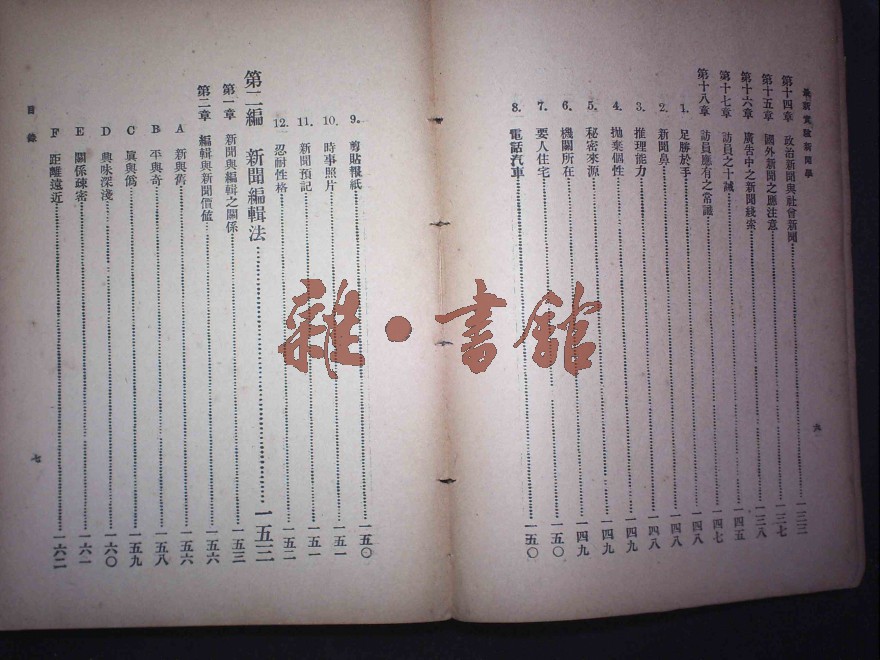 最新實驗新聞學
第十四章 政治新聞與社會新聞 一三三
第十五章 國外新聞之應注意 一三七
第十六章 廣告中之新聞綫索 一三八
第十七章 訪員之十誡 一四五
第十八章 訪員應有之常識 一四七
1. 足勝於手 一四八
2. 新聞鼻 一四八
3. 推理能力 一四八
4. 拋棄個性 一四九
5. 秘密來源 一四九
6. 機關所在 一四九
7. 要人住宅 一五〇
8. 電話汽車 一五〇
六
9. 剪貼報紙 一五〇
10. 時事照片 一五一
11. 新聞預記 一五一
12. 忍耐性格 一五二
第二編 新聞編輯法 一五三
第一章 新聞與編輯之關係 一五三
第二章 編輯與新聞價值 一五六
A 新與舊 一五六
B 平與奇 一五八
C 眞與僞 一五九
D 興味深淺 一六〇
E 關係疎密 一六一
F 距離遠近 一六二
目錄
七
雜•書館